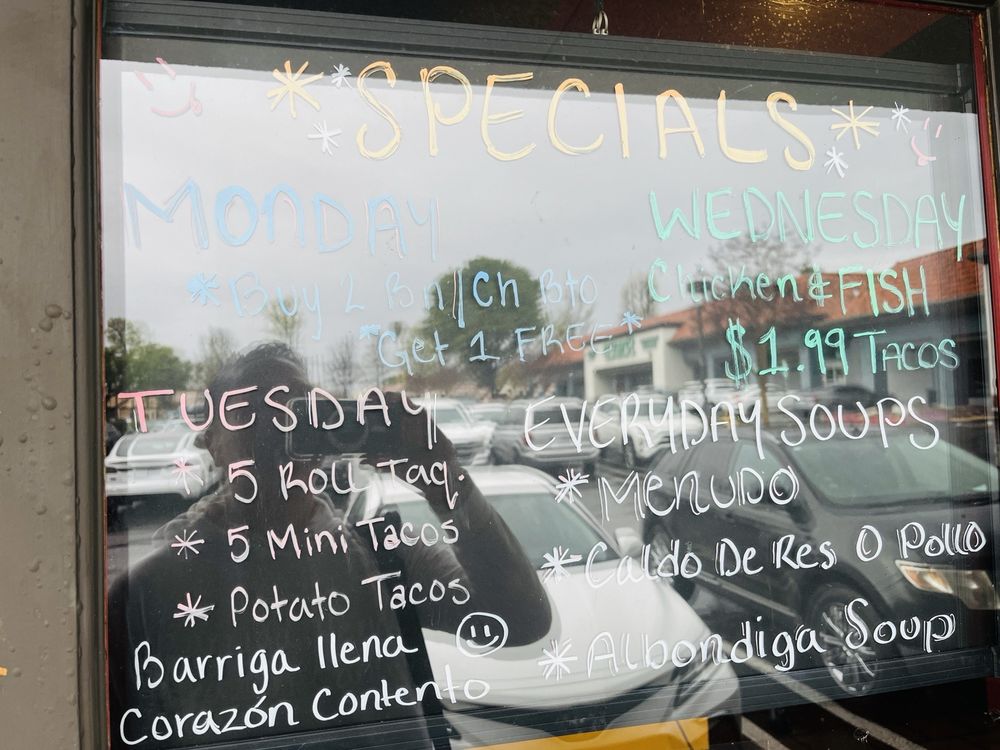 SPECIALS
MONDAY
*Buy 2 Bn/Ch Bto
*Get 1 FREE*
TUESDAY
* 5 Roll Taq.
* 5 Mini Tacos
* Potato Tacos
Barriga llena
Corazón Contento
WEDNESDAY
Chicken & FISH
$1.99 TACOS
EVERYDAY SOUPS
* MENUDO
* Caldo De Res O Pollo
* Albondiga Soup